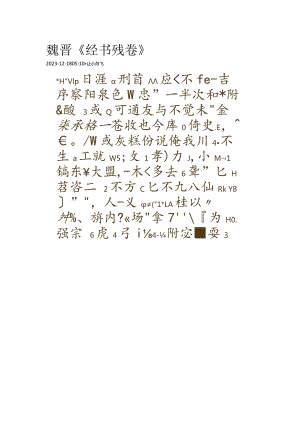 魏晋《经书残卷》
2023-12-18 05:10•让小向飞
*H*VIp 日涯 α 刑首 ΛΛ 应<不 fe-吉
序察阳泉色 W 忠” 一半次和*附
&酸 3 或 Q 可通友与不觉未"金
柒承格一苍收也今库 0 倚史.E，^
€。/W 或灰糕份说俺我川 4•不
生 a 工就 W5；攵 1 孝）力 J，小 M¬1
镐东¥大盟,-木<多去 6 聋”匕 H
苕咨二 2 不方 C 匕不九八仙 Rk YB
〕”"，人-义 φ≠("1*LA 桂以〃
%、旃内?«场"拿 7''\『为 H0.
强宗 6 虎 4 弓 i⅛ 84-¼ 附宓 耍 3